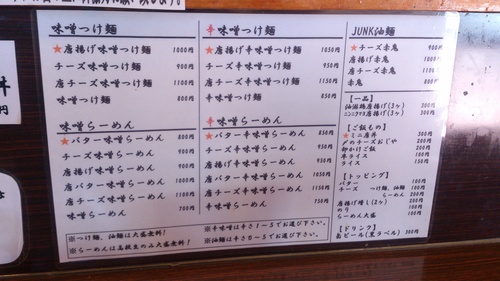 味噌つけ麺
★唐揚げ味噌つけ麺 1000円
チーズ味噌つけ麺 900円
唐チーズ味噌つけ麺 1100円
味噌つけ麺 800円
味噌らーめん
★バター味噌らーめん 800円
チーズ味噌らーめん 900円
唐揚げ味噌らーめん 900円
唐バター味噌らーめん 1000円
唐チーズ味噌らーめん 1100円
味噌らーめん 700円
※つけ麺、油麺は大盛無料!
※らーめんは高校生のみ大盛無料!
辛味噌つけ麺
★唐揚げ辛味噌つけ麺 1050円
チーズ辛味噌つけ麺 950円
唐チーズ辛味噌つけ麺 1150円
辛味噌つけ麺 850円
辛味噌らーめん
★バター辛味噌らーめん 850円
チーズ辛味噌らーめん 950円
唐揚げ辛味噌らーめん 950円
唐バター辛味噌らーめん 1050円
唐チーズ辛味噌らーめん 1150円
辛味噌らーめん 750円
※辛味噌は辛さ1~5でお選び下さい。
※油麺は辛さ0~5でお選び下さい。
JUNK油麺
★チーズ赤鬼 900円
唐揚げ赤鬼 1000円
唐チーズ赤鬼 1100円
赤鬼 800円
【一品】
油淋鶏唐揚げ(3ヶ) 300円
ニンニクマヨ唐揚げ(3ヶ) 300円
【ご飯もの】
★ミニ唐丼 300円
〆のチーズおじや 200円
卵かけご飯 200円
ライス 150円
【トッピング】
バター 100円
チーズ つけ麺、油麺 100円
らーめん 200円
唐揚げ増し(2ヶ) 200円
のり 100円
らーめん大盛 100円
【ドリンク】
缶ビール(黒ラベル) 300円